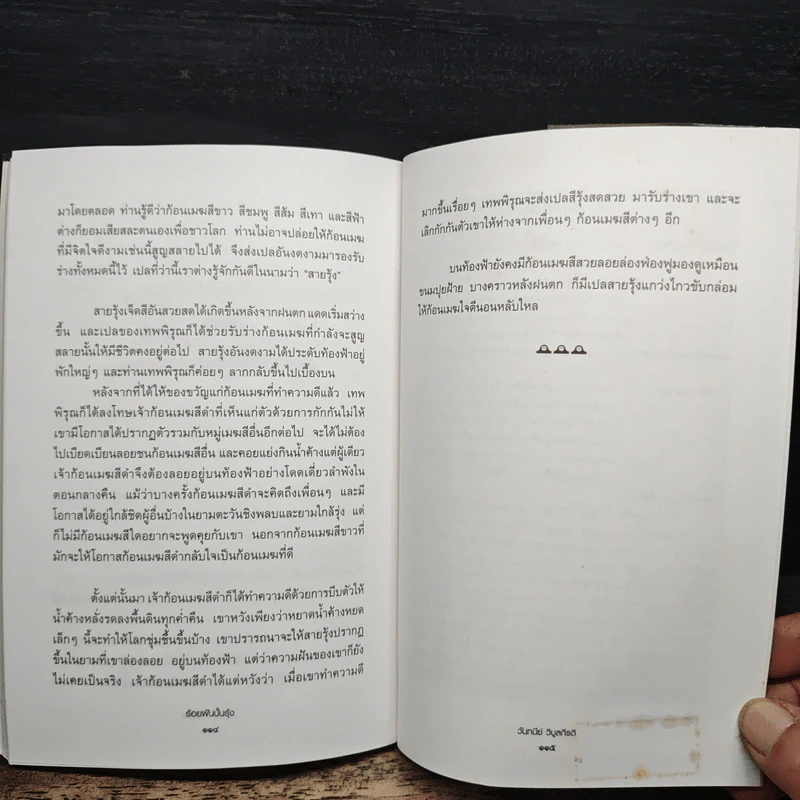 มาโดยตลอด ท่านรู้ดีว่าก้อนเมฆสีขาว สีชมพู สีส้ม สีเทา และสีฟ้า
ต่างก็ยอมเสียสละตนเองเพื่อชาวโลก ท่านไม่อาจปล่อยให้ก้อนเมฆ
ที่มีจิตใจดีงามเช่นนี้สูญสลายไปได้ จึงส่งเปลอันงดงามมารองรับ
ร่างทั้งหมดนี้ไว้ เปลที่ว่านี้เราต่างรู้จักกันดีในนามว่า “สายรุ้ง”
สายรุ้งเจ็ดสีอันสวยสดได้เกิดขึ้นหลังจากฝนตก แดดเริ่มสว่าง
ขึ้น และเปลของเทพพิรุณก็ได้ช่วยรับร่างก้อนเมฆที่กำลังจะสูญ
สลายนั้นให้มีชีวิตคงอยู่ต่อไป สายรุ้งอันงดงามได้ประดับท้องฟ้าอยู่
พักใหญ่ๆ และท่านเทพพิรุณก็ค่อยๆ ลากกลับขึ้นไปเบื้องบน
หลังจากที่ได้ให้ของขวัญแก่ก้อนเมฆที่ทำความดีแล้ว เทพ
พิรุณก็ได้ลงโทษเจ้าก้อนเมฆสีดำที่เห็นแก่ตัวด้วยการกักกันไม่ให้
เขามีโอกาสได้ปรากฏตัวรวมกับหมู่เมฆสีอื่นอีกต่อไป จะได้ไม่ต้อง
ไปเบียดเบียนลอยชนก้อนเมฆสีอื่น และคอยแย่งกินน้ำค้างแต่ผู้เดียว
เจ้าก้อนเมฆสีดำจึงต้องลอยอยู่บนท้องฟ้าอย่างโดดเดี่ยวลำพังใน
ตอนกลางคืน แม้ว่าบางครั้งก้อนเมฆสีดำจะคิดถึงเพื่อนๆ และมี
โอกาสได้อยู่ใกล้ชิดผู้อื่นบ้างในยามตะวันชิงพลบและยามใกล้รุ่ง แต่
ก็ไม่มีก้อนเมฆสีใดอยากจะพูดคุยกับเขา นอกจากก้อนเมฆสีขาวที่
มักจะให้โอกาสก้อนเมฆสีดำกลับใจเป็นก้อนเมฆที่ดี
ตั้งแต่นั้นมา เจ้าก้อนเมฆสีดำก็ได้ทำความดีด้วยการบีบตัวให้
น้ำค้างหลั่งรดลงพื้นดินทุกค่ำคืน เขาหวังเพียงว่าหยาดน้ำค้างหยด
เล็กๆ นี้จะทำให้โลกชุ่มชื้นขึ้นบ้าง เขาปรารถนาจะให้สายรุ้งปรากฏ
ขึ้นในยามที่เขาล่องลอย อยู่บนท้องฟ้า แต่ว่าความฝันของเขาก็ยัง
ไม่เคยเป็นจริง เจ้าก้อนเมฆสีดำได้แต่หวังว่า เมื่อเขาทำความดี
ร้อยฝันปั้นรุ้ง
๑๑๔
มากขึ้นเรื่อยๆ เทพพิรุณจะส่งเปลสีรุ้งสดสวย มารับร่างเขา และจะ
เลิกกักกันตัวเขาให้ห่างจากเพื่อนๆ ก้อนเมฆสีต่างๆ อีก
บนท้องฟ้ายังคงมีก้อนเมฆสีสวยลอยล่องฟ่องฟูมองดูเหมือน
ขนมปุยฝ้าย บางคราวหลังฝนตก ก็มีเปลสายรุ้งแกว่งไกวขับกล่อม
ให้ก้อนเมฆใจดีนอนหลับใหล
วันทนีย์ วิบูลกีรติ
๑๑๕